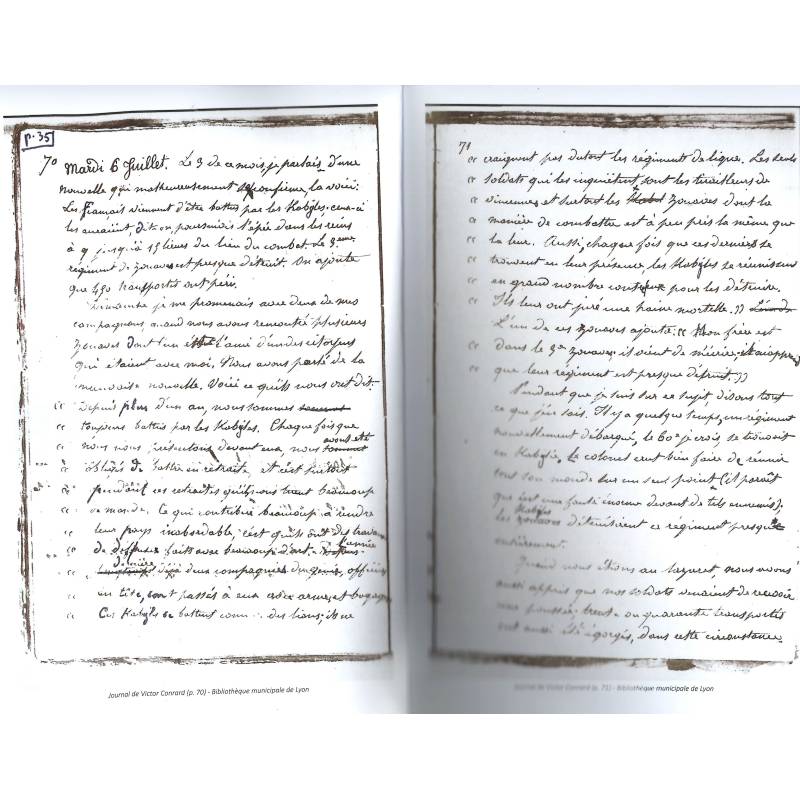 p. 35
70 Mardi 6 Juillet. Le 3 de ce mois, je parlais d'une
nouvelle qui malheureusement se confirme, la voici:
Les français viennent d'être battus par les Kabyles; ceux-ci
les auraient dit-on poursuivis l'épée dans les reins
à 9 jusqu'à 15 lieues du lieu du combat. Le 3eme
régiment de zouaves est presque détruit. On ajoute
que 450 transportés ont péri.
Dimanche je me promenais avec deux de mes
compagnons, quand nous avons rencontré plusieurs
zouaves dont l'un était l'ami d'un des citoyens
qui étaient avec moi. Nous avons parlé de la
mauvaise nouvelle. Voici ce qu'ils nous ont dit:
"Depuis plus d'un an, nous sommes
" toujours battus par les Kabyles. Chaque fois que
" nous nous présentons devant eux, nous avons été
" obligés de battre en retraite et c'est surtout
" pendant ces retraites qu'ils nous tuent beaucoup
" de monde. Ce qui contribue beaucoup à rendre
" leur pays inabordable, c'est qu'ils ont des travaux
" de défenses faits avec beaucoup d'art. L'année
" dernière déjà deux compagnies des officiers
" en tête, sont passés à eux avec armes et bagages
" Ces Kabyles se battent comme des lions; ils ne
Journal de Victor Conrard (p. 70) - Bibliothèque municipale de Lyon
71
" craignent pas du tout les régiments de ligne. Les seuls
" soldats qui les inquiètent sont les tirailleurs de
" vincennes et surtout les zouaves dont la
" manière de combattre est à peu près la même que
" la leur. Aussi, chaque fois que ces derniers se
" trouvent en leur présence, les Kabyles se réunissent
" en grand nombre contre eux pour les détruire.
" Ils leur ont juré une haine mortelle. "
L'un de ces zouaves ajouta: " Mon frère est
" dans le 3e zouaves il vient de m'écrire
" que leur régiment est presque détruit. "
Pendant que je suis sur ce sujet disons tout
ce que j'en sais. Il y a quelque temps, un régiment
nouvellement débarqué, le 60e je crois, se trouvait
en Kabylie. Le colonel crut bien faire de réunir
tout son monde sur un seul point (il paraît
que c'est une faute énorme devant de tels ennemis);
les Kabyles détruisirent ce régiment presque
entièrement.
Quand nous étions au lazaret, nous avons
aussi appris que nos soldats venaient de recevoir
une poussée; trente ou quarante transportés
ont aussi été égorgés, dans cette circonstance
Journal de Victor Conrard (p. 71) - Bibliothèque municipale de Lyon